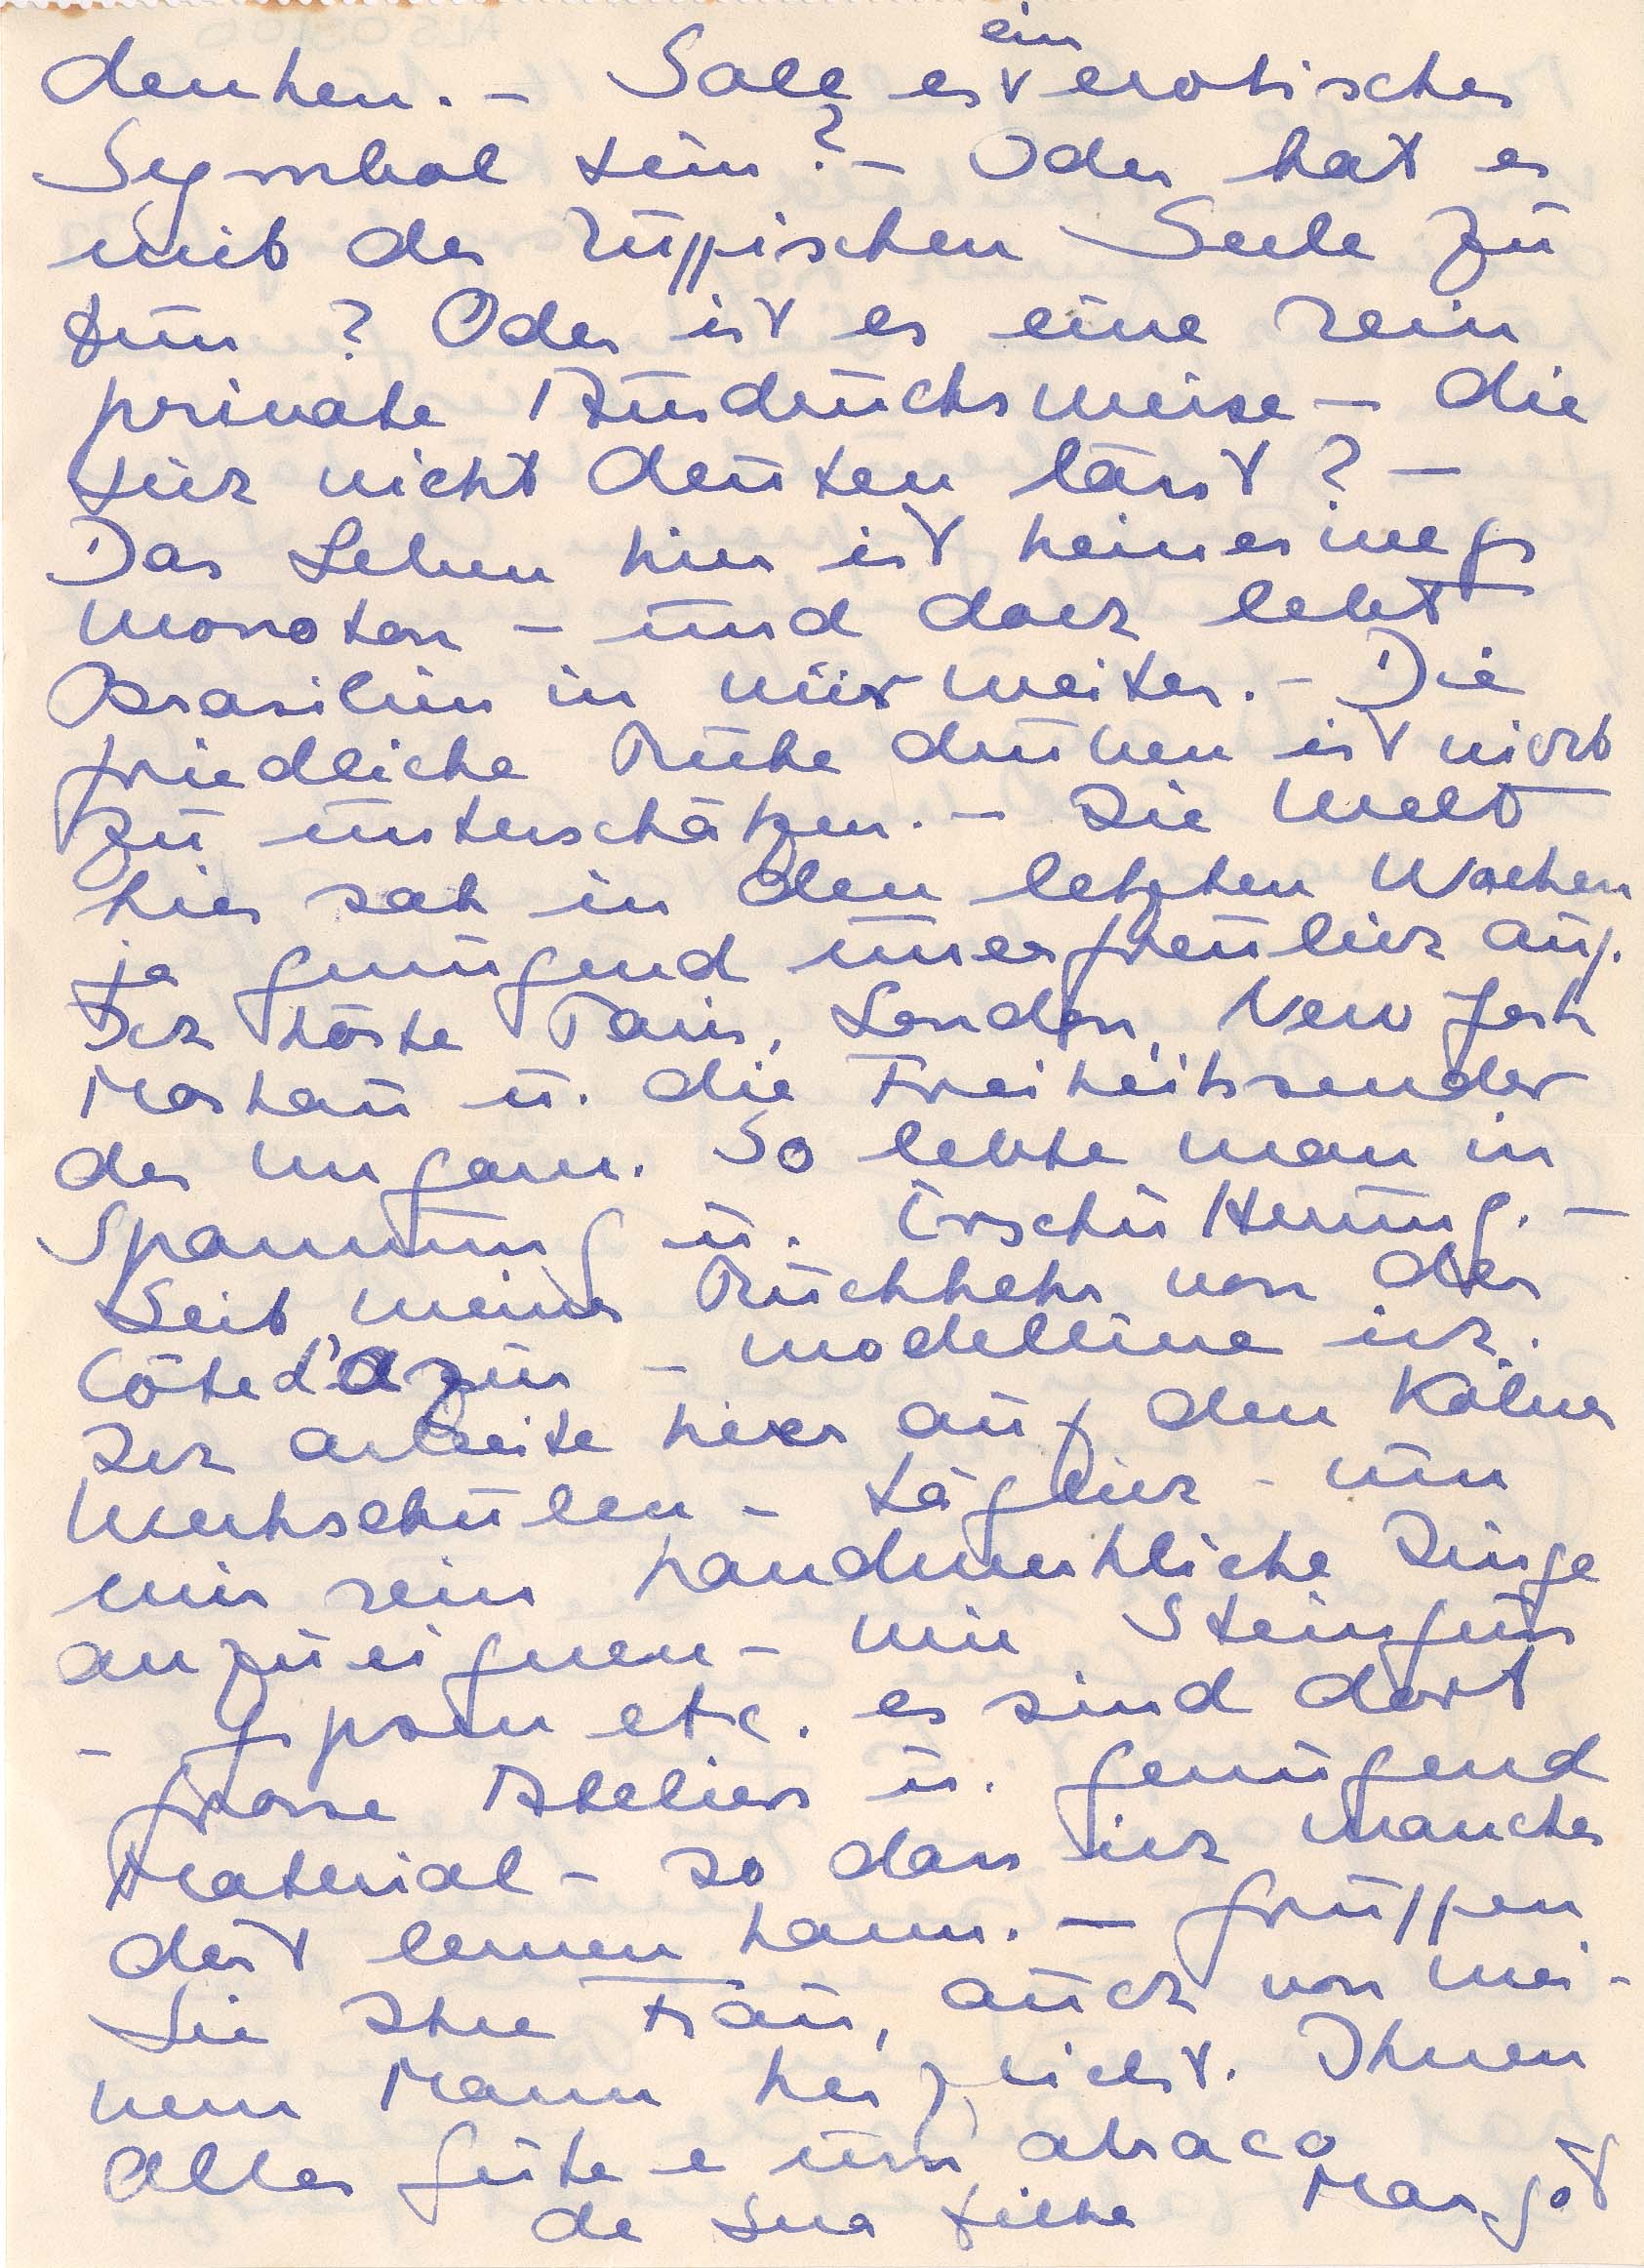 denken. – Soll es ein erotisches
Symbol sein? – Oder hat es
mit der russischen Seele zu
tun? Oder ist es eine rein
private Ausdrucksweise – die
sich nicht deuten lässt? –
Das Leben hier ist keineswegs
monoton – und doch lebt
Brasilien in mir weiter. – Die
friedliche Ruhe drüben ist nicht
zu unterschätzen. – Die Welt
hier sah in den letzten Wochen
ja genügend unerfreulich aus.
Ich hörte Paris, London, New York
Moskau u. die Freiheitssender
der Ungarn. So lebte man in
Spannung u. Erschütterung. –
Seit meiner Rückkehr von der
Côte d'azur – modelliere ich.
Ich arbeite hier auf den Kölner
Werkschulen – täglich – um
mir rein handwerkliche Dinge
anzueignen – wie Steinguss
– gipsen etc. es sind dort
grosse Ateliers u. genügend
Material – so dass ich manches
dort lernen kann. – Grüssen
Sie Ihre Frau, auch von mei-
nem Mann herzlichst. Ihnen
alles Gute e um abraco
de sua filha Margot